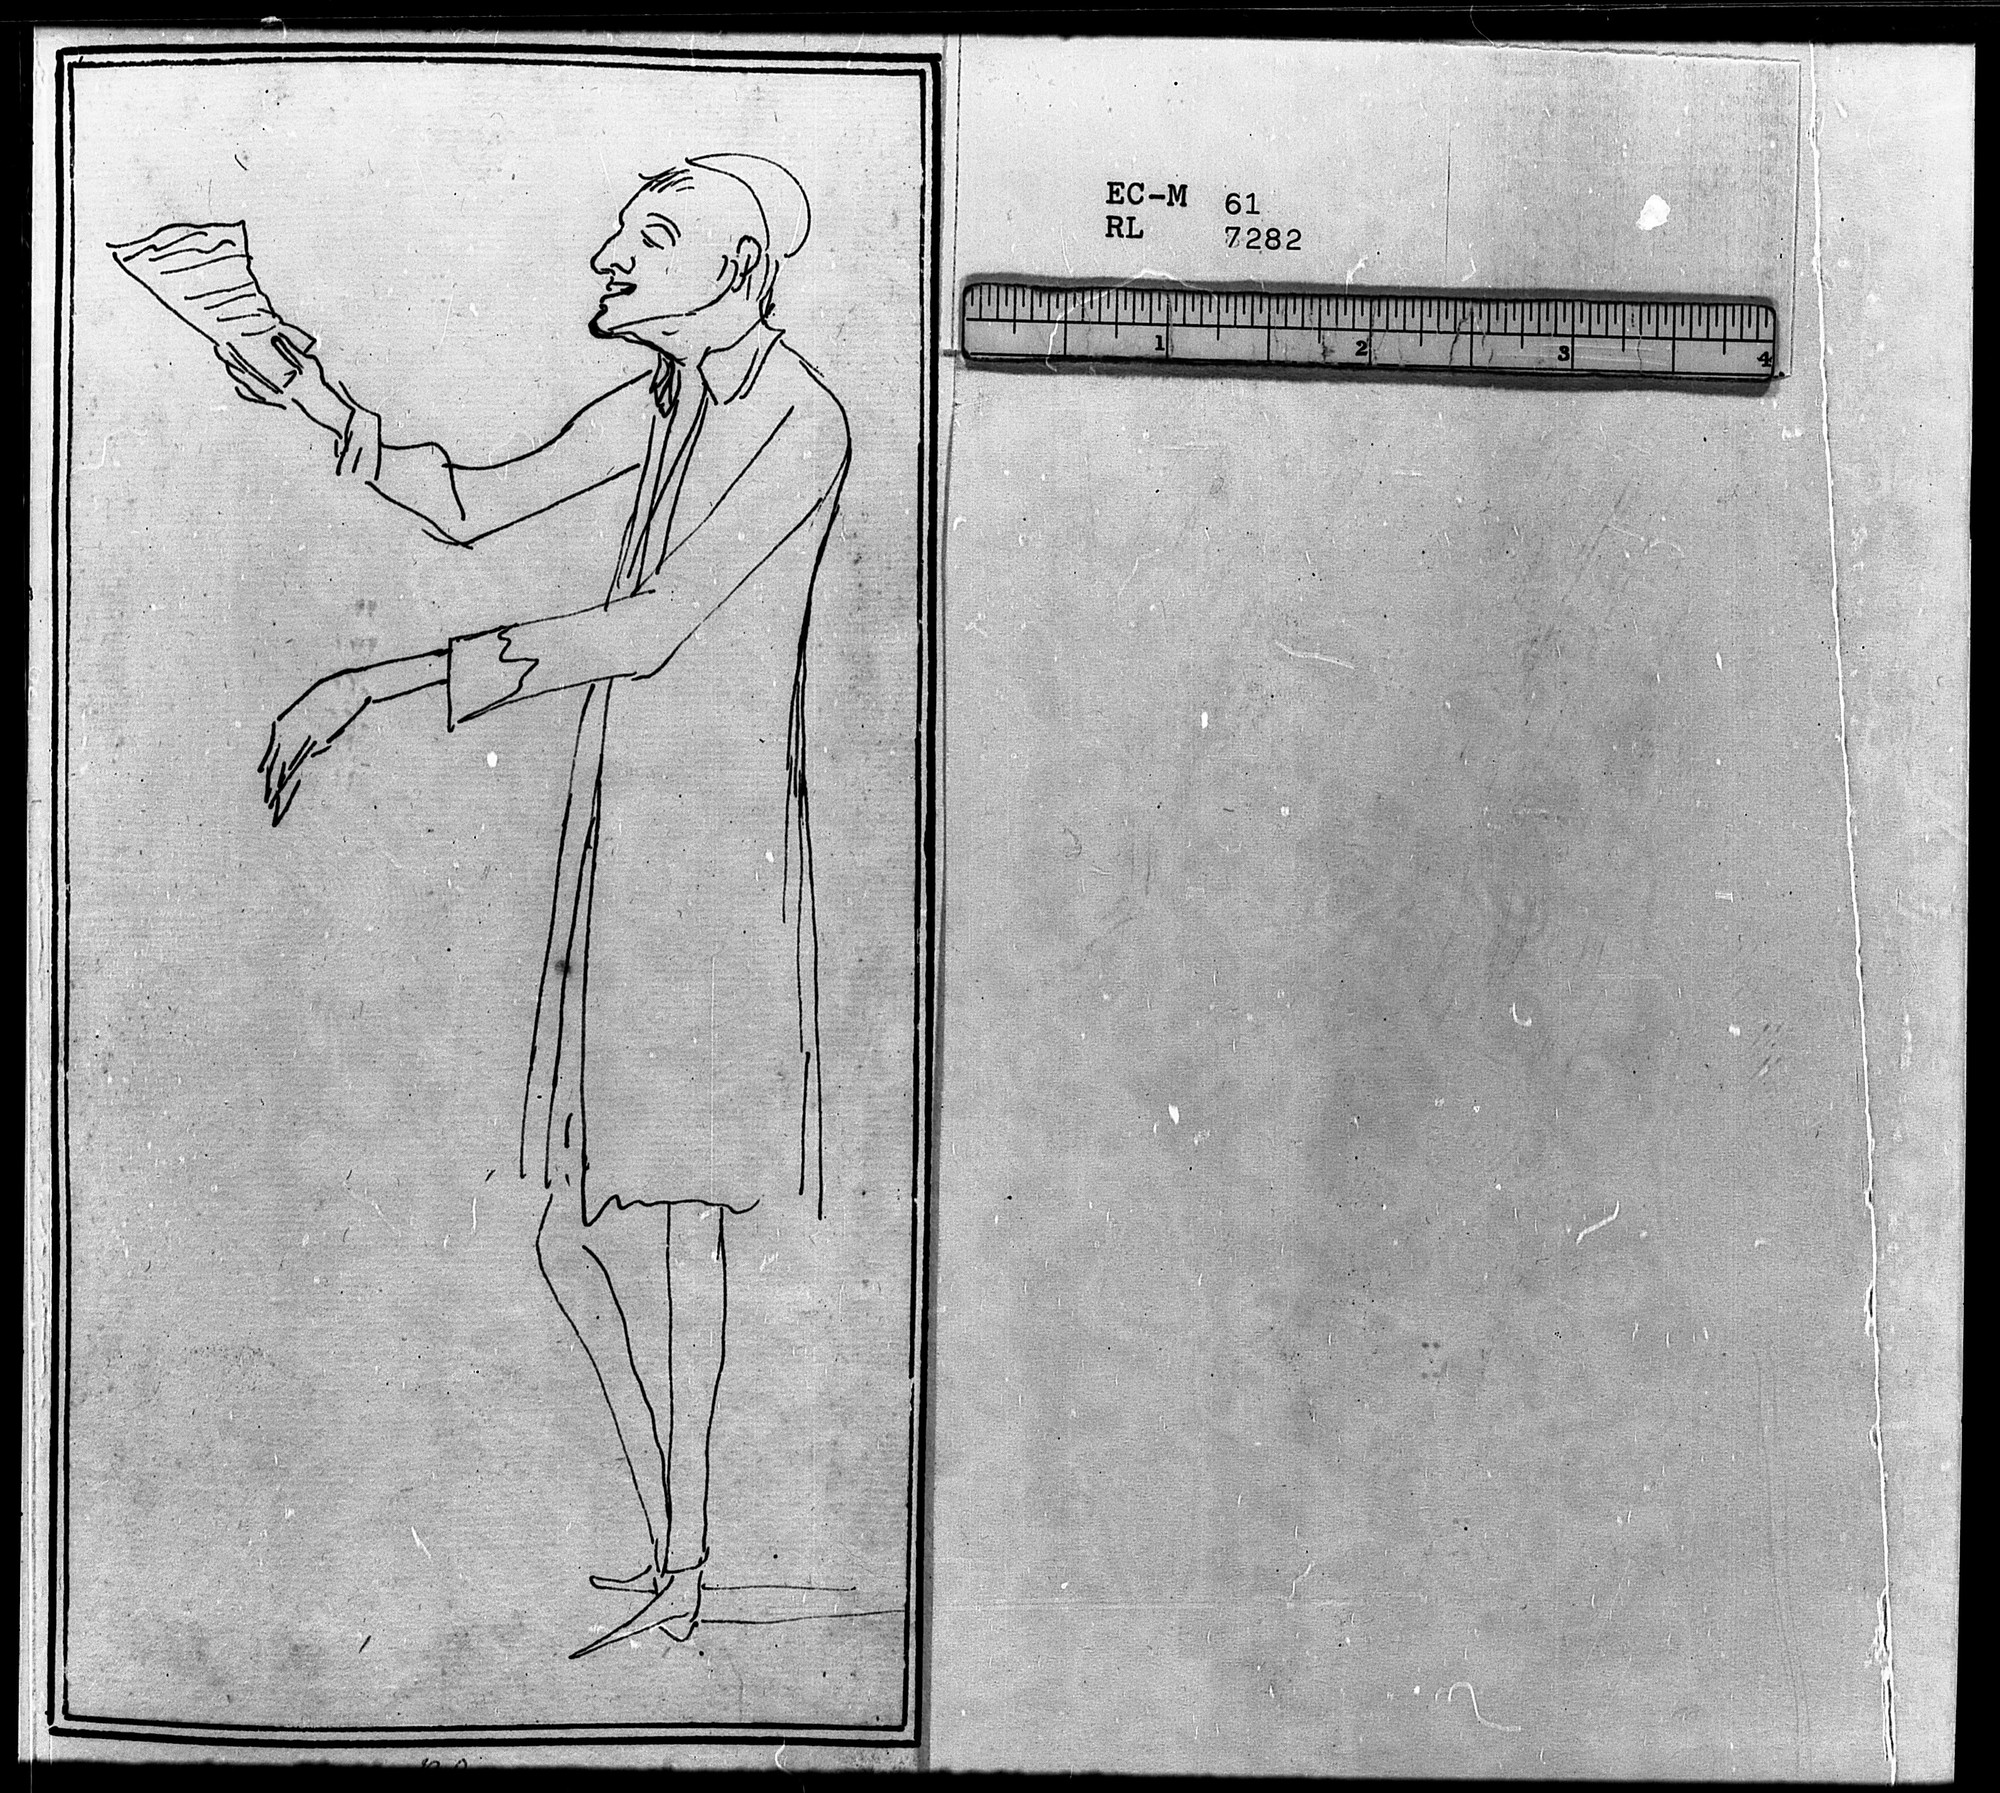 EC-M 61
RL 7282
1 2 3 4